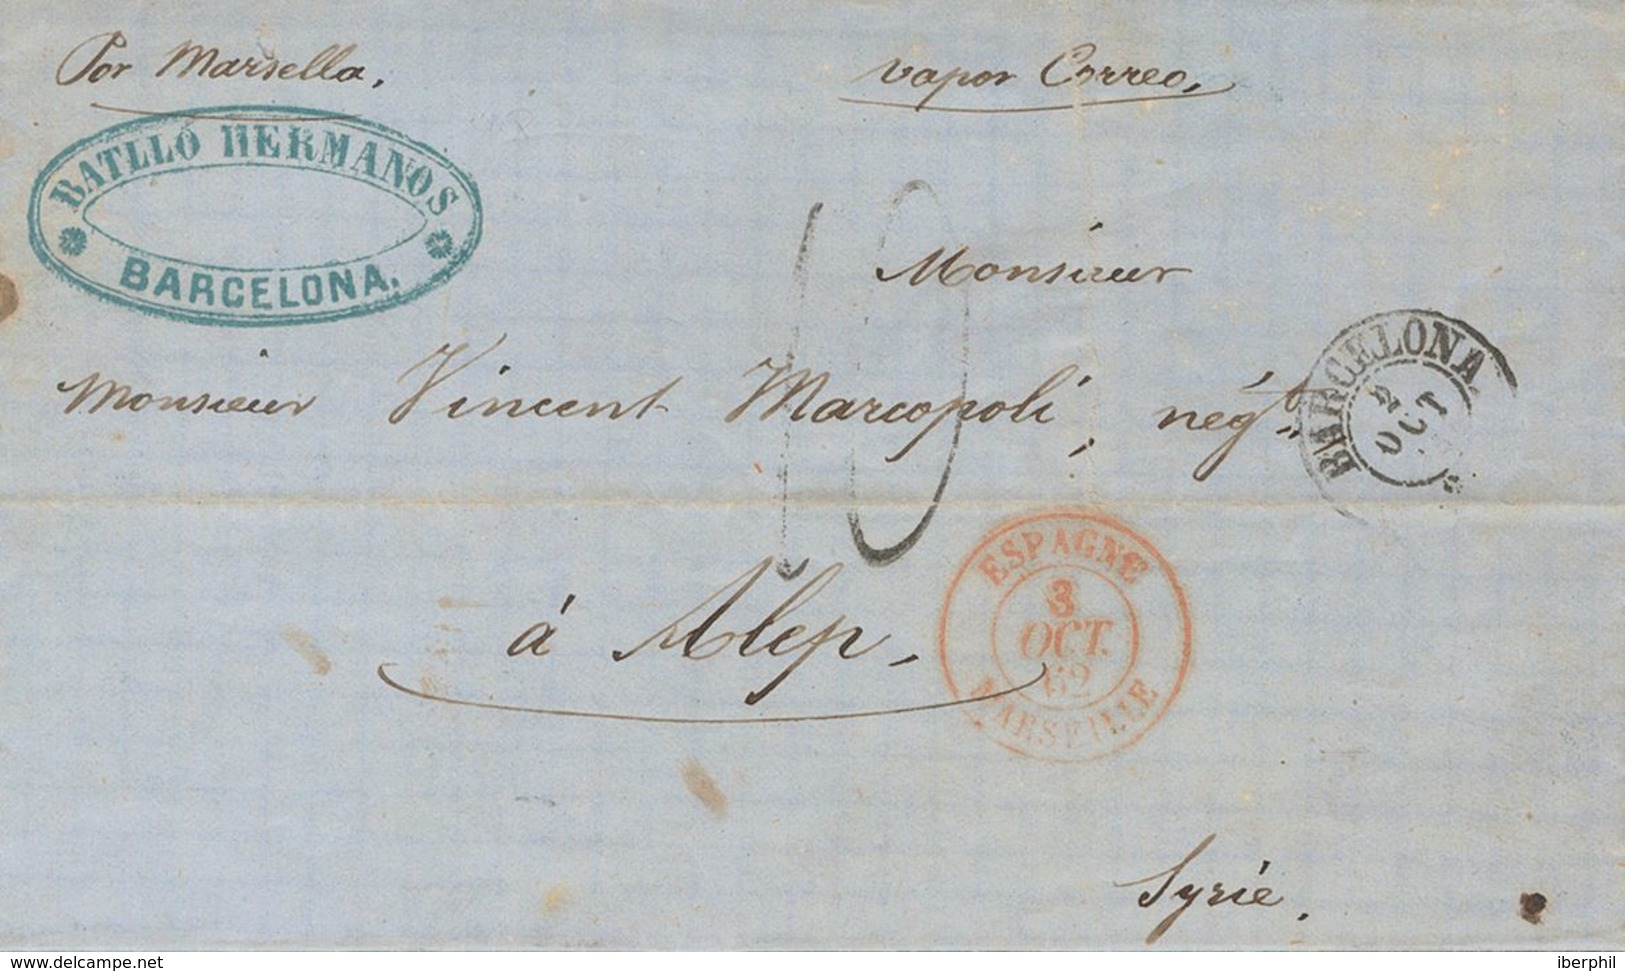 Por Marsella,
vapor Correo,
BATLLÓ HERMANOS
BARCELONA.
10
Monsieur
Monsieur Vincent Marcopoli, négt.
BARCELONA
2
OCT
ESPAGNE
3
OCT.
62
MARSEILLE
à Alep,
Syrie,
www.delcampe.net
iberphil